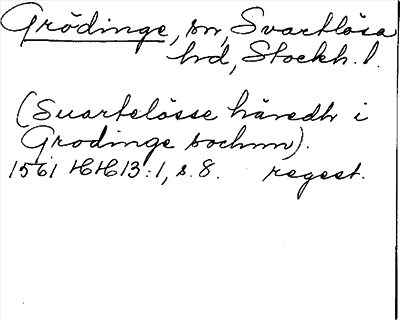 Grödinge, sn, Svartlösa
hd, Stockh. l.
(Suartelösse häredh i
Grodinge sochnn).
1561 HH 13:1, s. 8. regest.